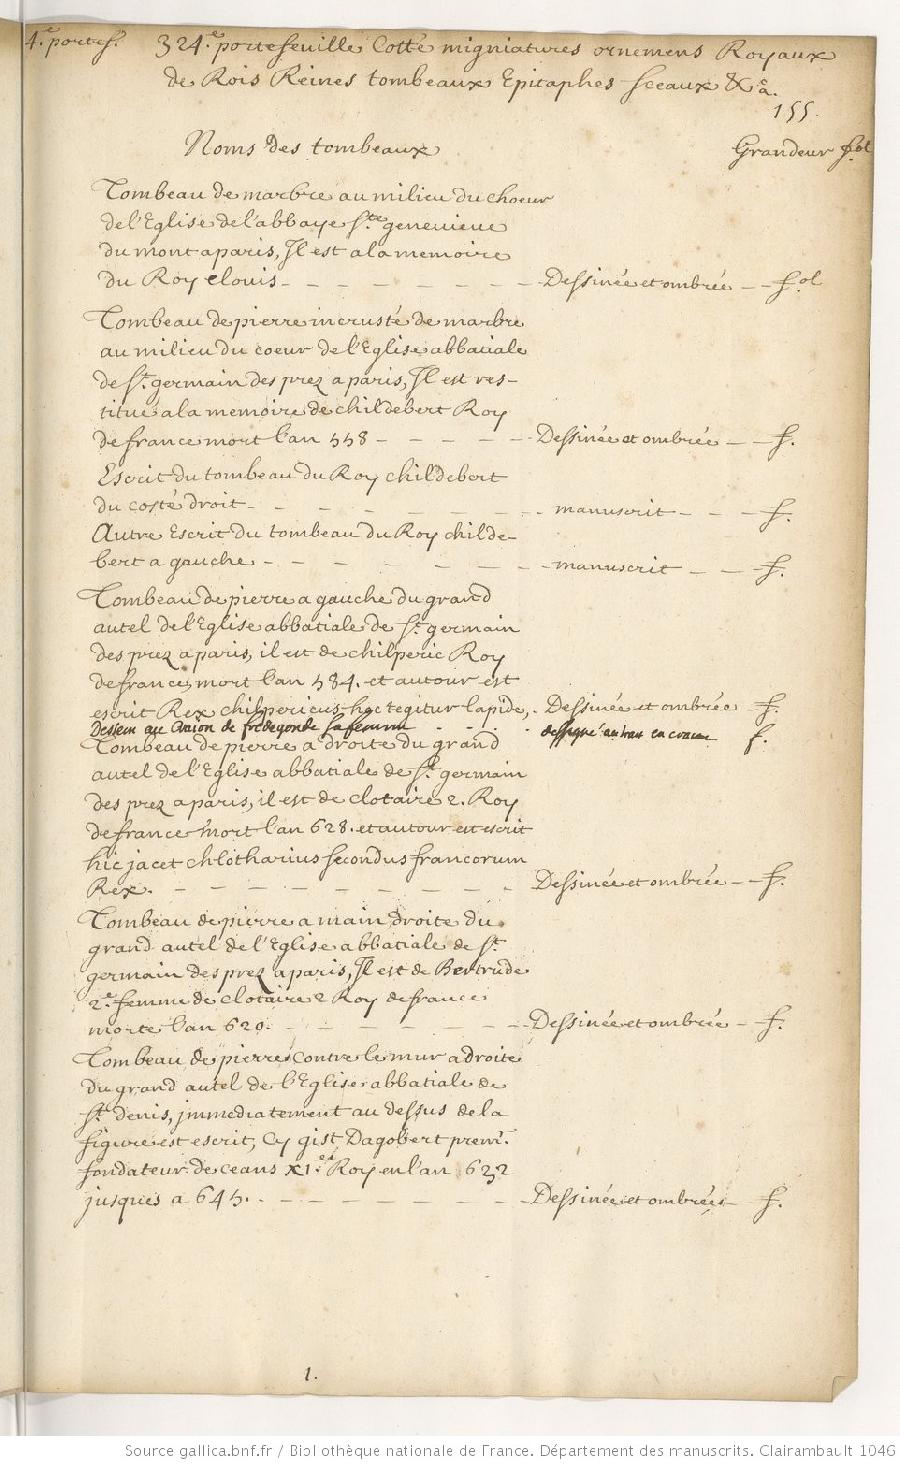 4.e portef. 324.e portefeuille Cotté migniatures ornemens Royaux
de Rois Reines tombeaux Epitaphes sceaux &c.a
155.
Noms des tombeaux Grandeur f.ol
Tombeau de marbre au milieu du choeur
de l'Eglise de l'abbaye ste genevieve
du mont a paris, Il est a la memoire
du Roy clouis - - - - - - - - Dessinée et ombrée - - f.ol
Tombeau de pierre incrusté de marbre
au milieu du coeur de l'Eglise abbatiale
de st. germain des prez a paris, Il est res-
titué a la memoire de childebert Roy
de france mort l'an 558 - - - - - Dessinée et ombrée - - f.
Escrit du tombeau du Roy childebert
du costé droit - - - - - - - - manuscrit - - - f.
Autre Escrit du tombeau du Roy childe-
bert a gauche. - - - - - - - - manuscrit - - - f.
Tombeau de pierre a gauche du grand
autel de l'Eglise abbatiale de st. germain
des prez a paris, il est de chilperic Roy
de france, mort l'an 584. et autour est
escrit Rex chilpericus hoc tegitur lapide, . Dessinée et ombrée f.
Dessein au craion de fredegonde sa femme - - - . f.
Tombeau de pierre a droite du grand
autel de l'Eglise abbatiale de st. germain
des prez a paris, il est de clotaire 2. Roy
de france mort l'an 628. et autour est escrit
hic jacet chlotharius secondus francorum
Rex. - - - - - - - - - Dessinée et ombrée - - f.
Tombeau de pierre a main droite du
grand autel de l'Eglise abbatiale de st.
germain des prez a paris, Il est de Bertrude
2.e femme de clotaire 2 Roy de france
morte l'an 620. - - - - - - - Dessinée et ombrée - f.
Tombeau de pierre contre le mur a droite
du grand autel de l'Eglise abbatiale de
st. denis, immediatement au dessus de la
figure est escrit, Cy gist Dagobert premr.
fondateur de ceans XI.e Roy en l'an 632
jusques a 645. - - - - - - - - Dessinée et ombrée - f.
1.
Source gallica.bnf.fr / Bibliothèque nationale de France. Département des manuscrits. Clairambault 1046